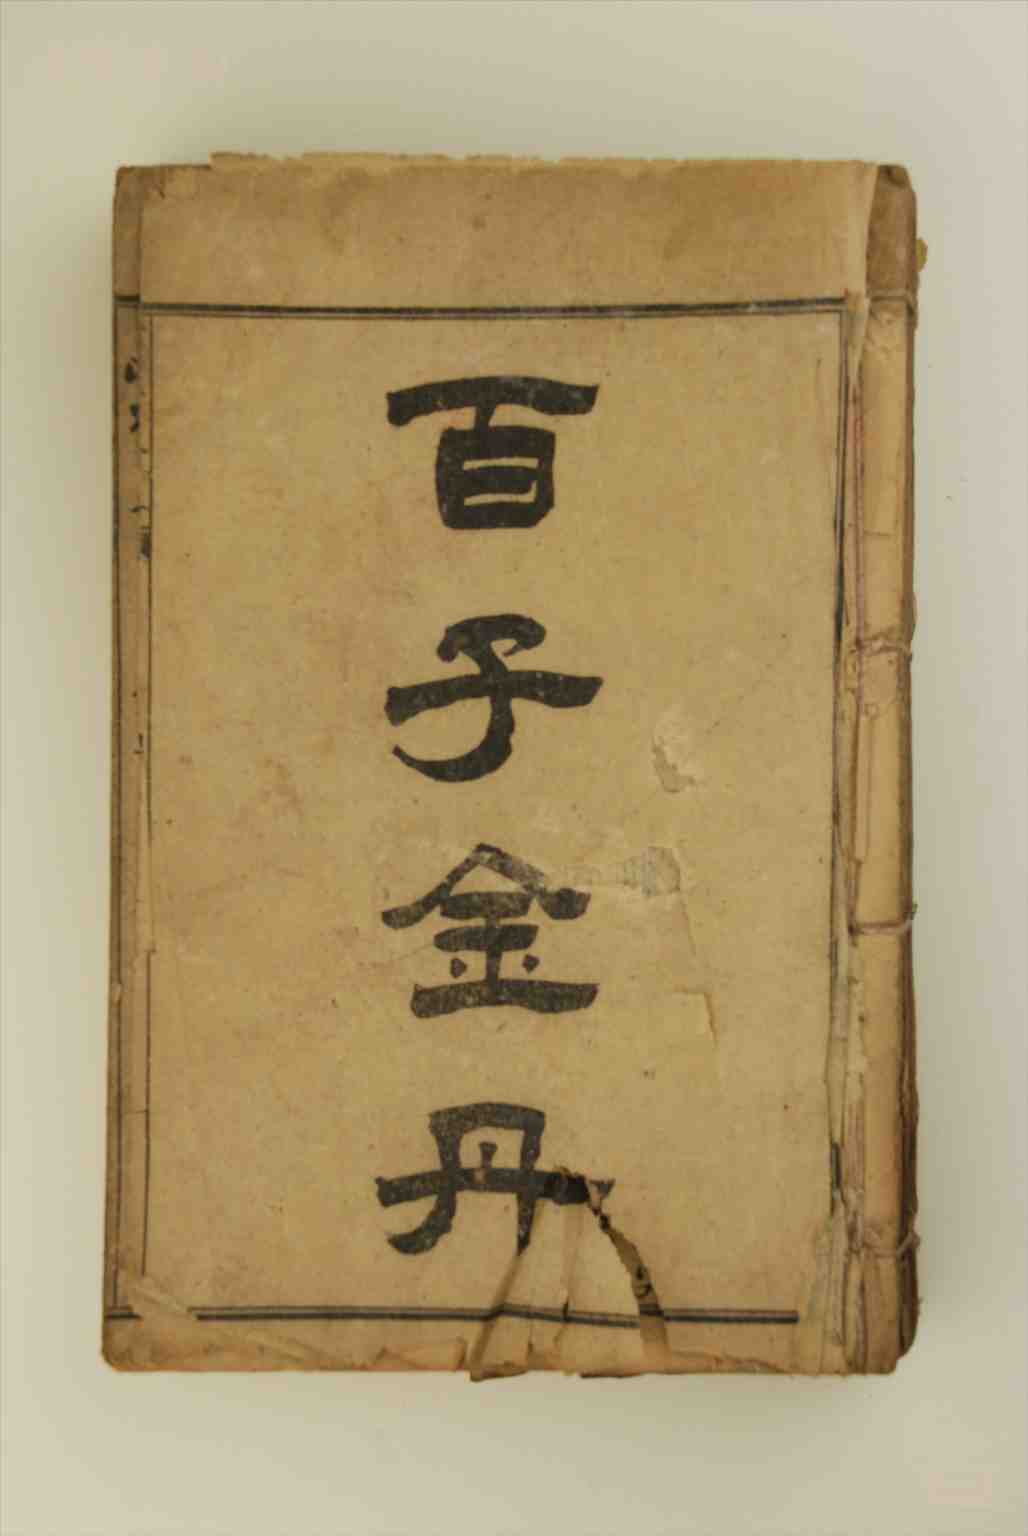 百子金丹